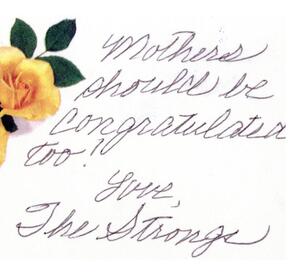 Mothers
should be
Congratulated
too!
Love,
The Strongs